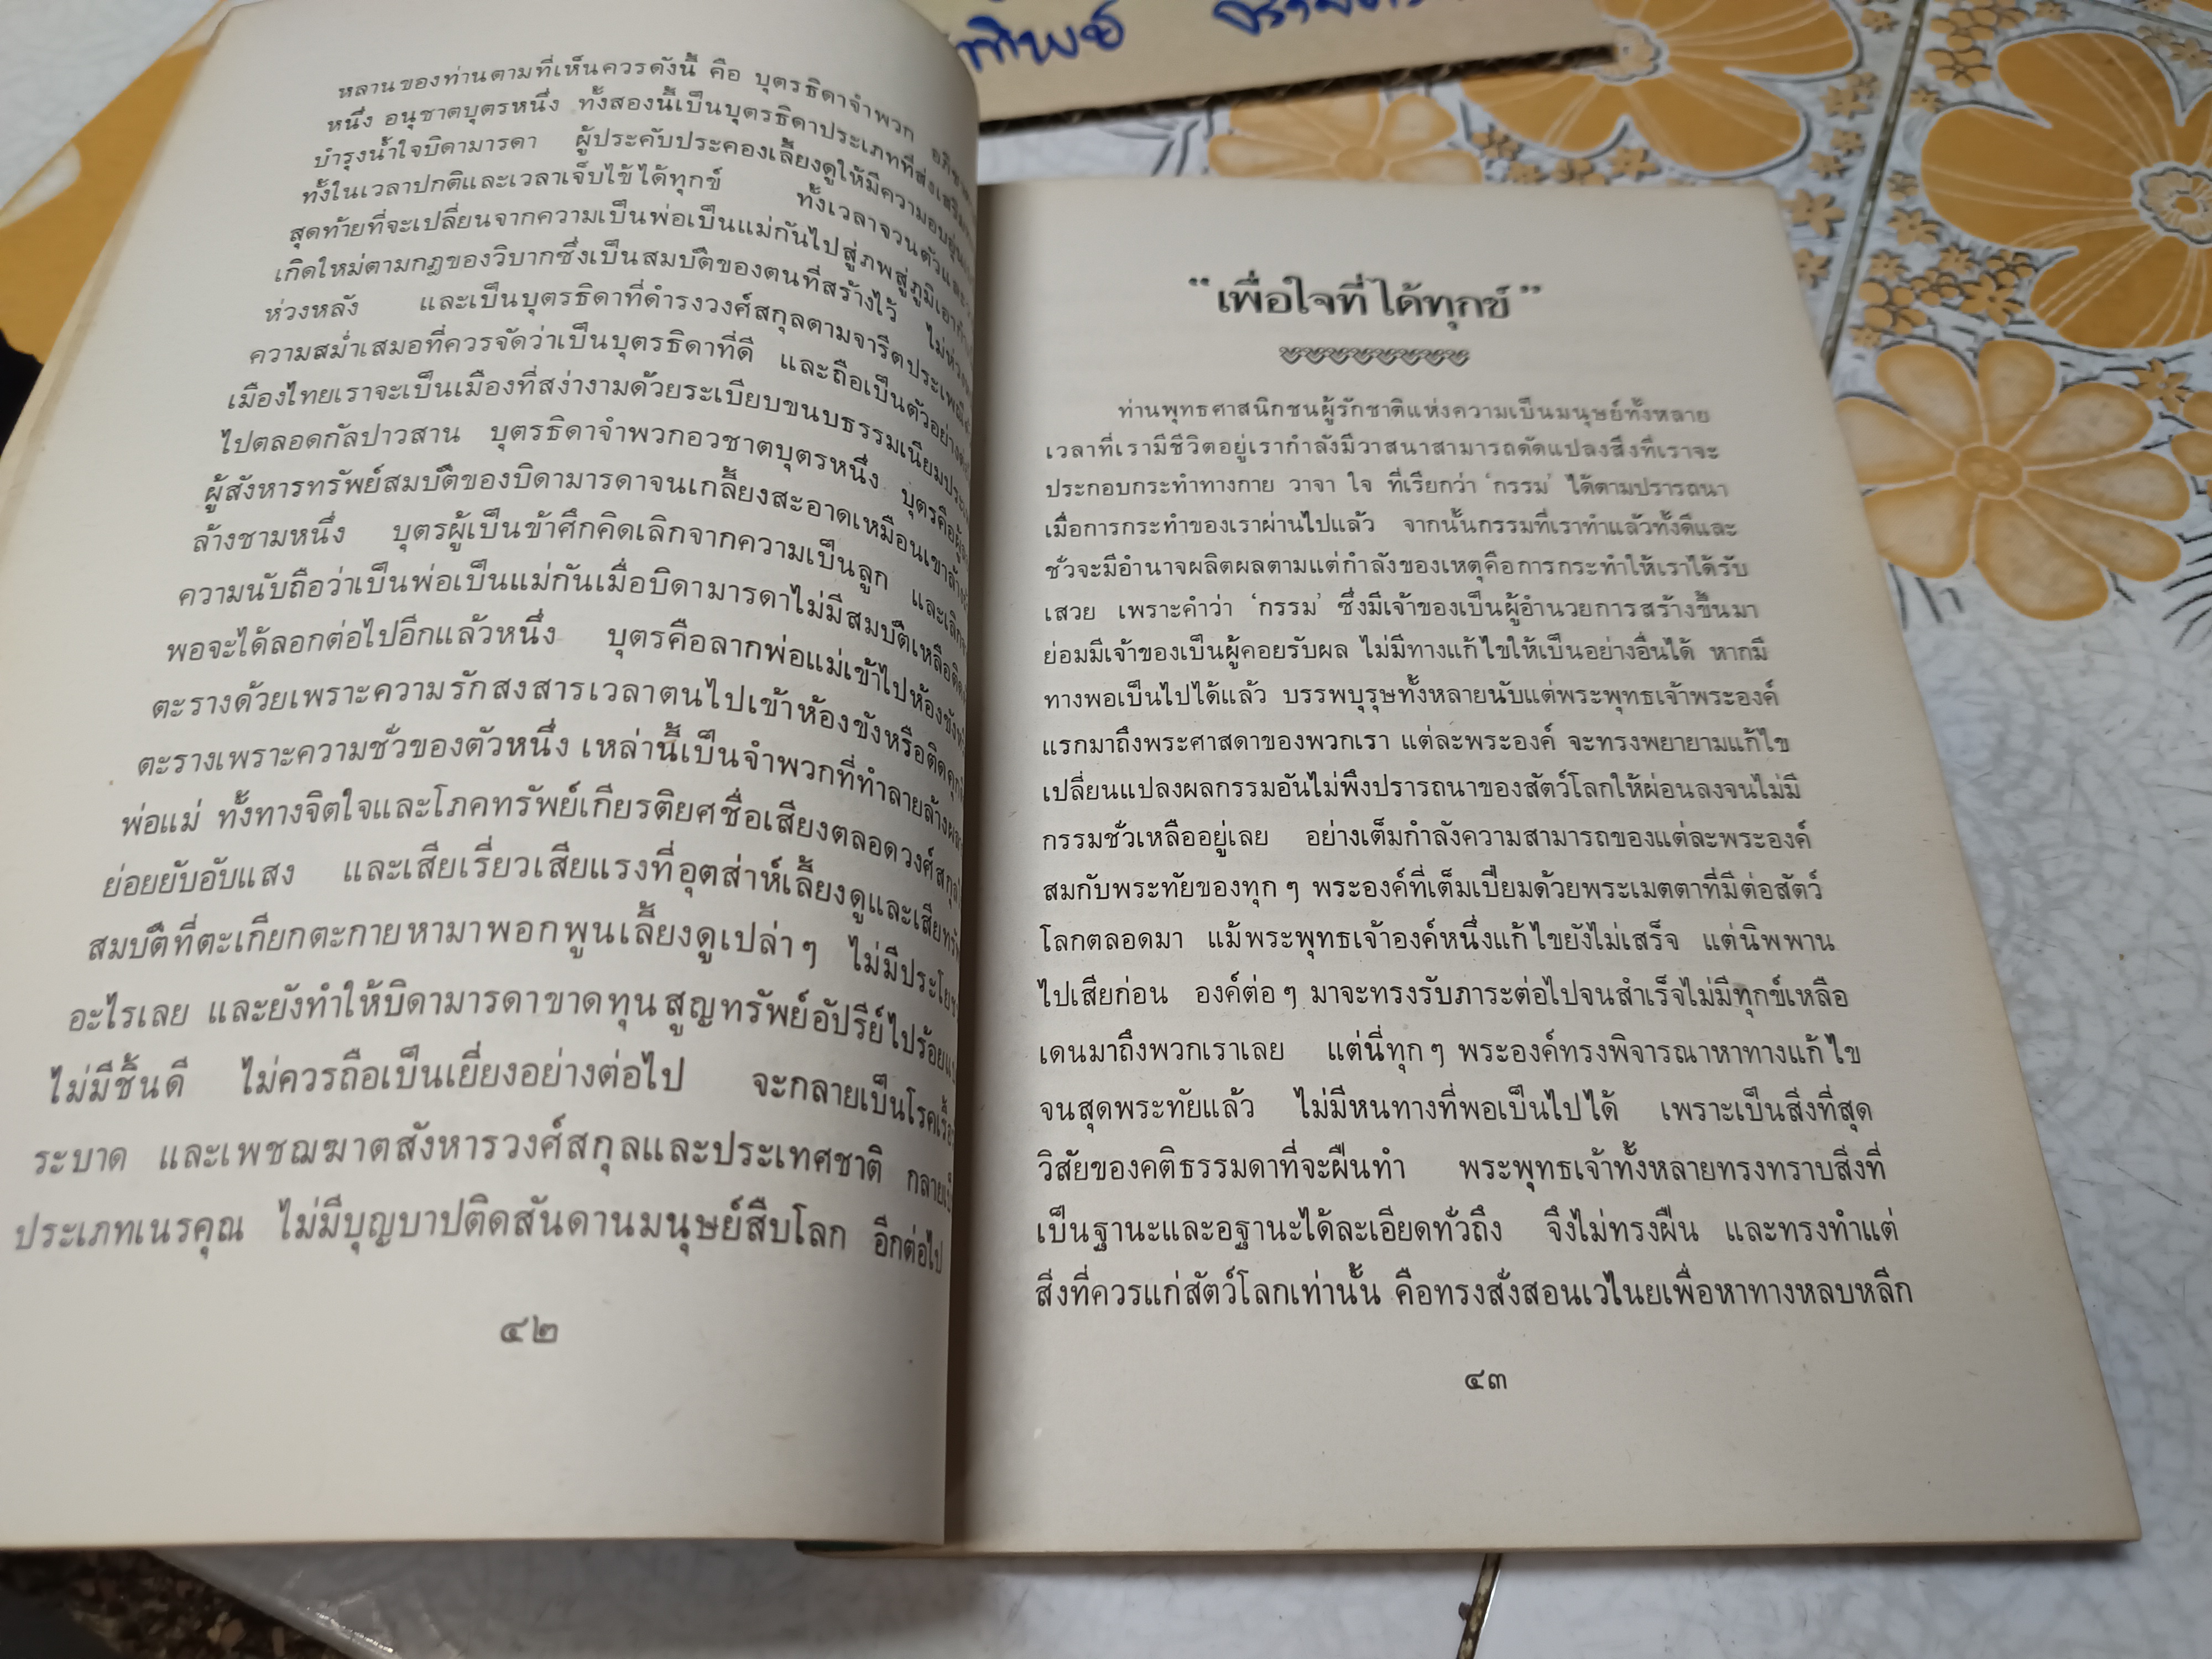 หลานของท่านตามที่เห็นควรดังนี้ คือ บุตรธิดาจำพวก
หนึ่ง อนุชาตบุตรหนึ่ง ทั้งสองนี้เป็นบุตรธิดาประเภทที่ส่งเสริม
บำรุงน้ำใจบิดามารดา ผู้ประคับประคองเลี้ยงดูให้มีความอบอุ่น
ทั้งในเวลาปกติและเวลาเจ็บไข้ได้ทุกข์ ทั้งเวลาจวนตัวและ
สุดท้ายที่จะเปลี่ยนจากความเป็นพ่อเป็นแม่กันไปสู่ภพสู่ภูมิเอา
เกิดใหม่ตามกฎของวิบากซึ่งเป็นสมบัติของตนที่สร้างไว้ ไม่ห่วง
ห่วงหลัง และเป็นบุตรธิดาที่ดำรงวงศ์สกุลตามจารีตประเพณี
ความสม่ำเสมอที่ควรจัดว่าเป็นบุตรธิดาที่ดี และถือเป็นตัวอย่าง
เมืองไทยเราจะเป็นเมืองที่สง่างามด้วยระเบียบขนบธรรมเนียม
ไปตลอดกัลปาวสาน บุตรธิดาจำพวกอวชาตบุตรหนึ่ง บุตรคือผู้
ผู้สังหารทรัพย์สมบัติของบิดามารดาจนเกลี้ยงสะอาดเหมือนเขาล้าง
ล้างชามหนึ่ง บุตรผู้เป็นข้าศึกคิดเลิกจากความเป็นลูก และเลิก
ความนับถือว่าเป็นพ่อเป็นแม่กันเมื่อบิดามารดาไม่มีสมบัติเหลือ
พอจะได้ลอกต่อไปอีกแล้วหนึ่ง บุตรคือลากพ่อแม่เข้าไปห้องขัง
ตะรางด้วยเพราะความรักสงสารเวลาตนไปเข้าห้องขังหรือติดคุก
ตะรางเพราะความชั่วของตัวหนึ่ง เหล่านี้เป็นจำพวกที่ทำลายล้าง
พ่อแม่ ทั้งทางจิตใจและโภคทรัพย์เกียรติยศชื่อเสียงตลอดวงศ์สกุล
ย่อยยับอับแสง และเสียเรี่ยวเสียแรงที่อุตส่าห์เลี้ยงดูและเสีย
สมบัติที่ตะเกียกตะกายหามาพอกพูนเลี้ยงดูเปล่าๆ ไม่มีประโยชน์
อะไรเลย และยังทำให้บิดามารดาขาดทุน สูญทรัพย์อัปรีย์ไปร้อย
ไม่มีชิ้นดี ไม่ควรถือเป็นเยี่ยงอย่างต่อไป จะกลายเป็นโรค
ระบาด และเพชฌฆาตสังหารวงศ์สกุลและประเทศชาติ กลาย
ประเภทเนรคุณ ไม่มีบุญบาปติดสันดานมนุษย์สืบโลก อีกต่อไป
๔๒
“เพื่อใจที่ได้ทุกข์”
ท่านพุทธศาสนิกชนผู้รักชาติแห่งความเป็นมนุษย์ทั้งหลาย
เวลาที่เรามีชีวิตอยู่เรากำลังมีวาสนาสามารถดัดแปลงสิ่งที่เราจะ
ประกอบกระทำทางกาย วาจา ใจ ที่เรียกว่า ‘กรรม’ ได้ตามปรารถนา
เมื่อการกระทำของเราผ่านไปแล้ว จากนั้นกรรมที่เราทำแล้วทั้งดีและ
ชั่วจะมีอำนาจผลิตผลตามแต่กำลังของเหตุคือการกระทำให้เราได้รับ
เสวย เพราะคำว่า ‘กรรม’ ซึ่งมีเจ้าของเป็นผู้อำนวยการสร้างขึ้นมา
ย่อมมีเจ้าของเป็นผู้คอยรับผล ไม่มีทางแก้ไขให้เป็นอย่างอื่นได้ หากมี
ทางพอเป็นไปได้แล้ว บรรพบุรุษทั้งหลายนับแต่พระพุทธเจ้าพระองค์
แรกมาถึงพระศาสดาของพวกเรา แต่ละพระองค์ จะทรงพยายามแก้ไข
เปลี่ยนแปลงผลกรรมอันไม่พึงปรารถนาของสัตว์โลกให้ผ่อนลงจนไม่มี
กรรมชั่วเหลืออยู่เลย อย่างเต็มกำลังความสามารถของแต่ละพระองค์
สมกับพระทัยของทุกๆ พระองค์ที่เต็มเปี่ยมด้วยพระเมตตาที่มีต่อสัตว์
โลกตลอดมา แม้พระพุทธเจ้าองค์หนึ่งแก้ไขยังไม่เสร็จ แต่นิพพาน
ไปเสียก่อน องค์ต่อๆ มาจะทรงรับภาระต่อไปจนสำเร็จไม่มีทุกข์เหลือ
เดนมาถึงพวกเราเลย แต่นี่ทุกๆ พระองค์ทรงพิจารณาหาทางแก้ไข
จนสุดพระทัยแล้ว ไม่มีหนทางที่พอเป็นไปได้ เพราะเป็นสิ่งที่สุด
วิสัยของคติธรรมดาที่จะฝืนทำ พระพุทธเจ้าทั้งหลายทรงทราบสิ่งที่
เป็นฐานะและอฐานะได้ละเอียดทั่วถึง จึงไม่ทรงฝืน และทรงทำแต่
สิ่งที่ควรแก่สัตว์โลกเท่านั้น คือทรงสั่งสอนเวไนยเพื่อหาทางหลบหลีก
๔๓